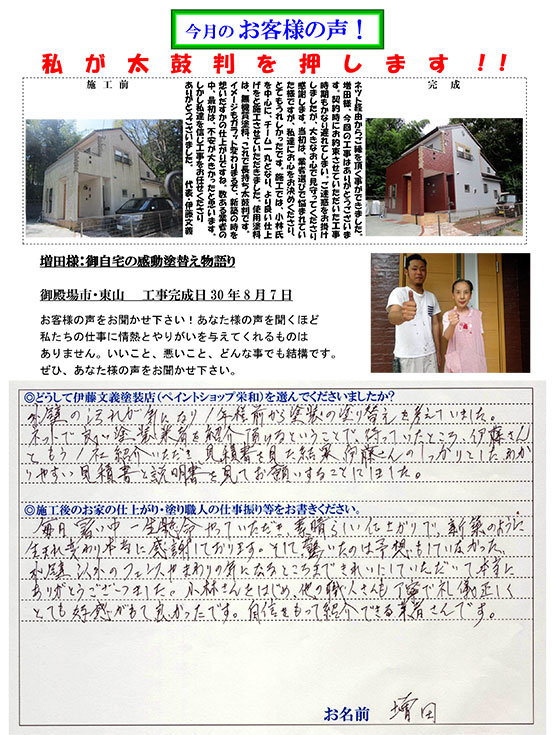 今月の お客様の声！
私が太鼓判を押します!!
施工前
完成
ネット経由からご縁を頂く事ができました、
増田様、今回の工事はありがとうございま
す。契約時にお約束させていただいた工事
時期もかなり遅れてしまい、ご迷惑をお掛け
しましたが、大きなお心で見守ってくださり
感謝します。当初は、業者選びで悩まれてい
た様ですが、私達にお心をお決めくださり、
とてもうれしかったです。施工では、小林氏
を中心に、チーム一丸となり、より良い仕上
げをと施工させていただきました。使用塗料
は、無機質塗料、これで長持ち太鼓判です。
イメージもガラッと変わりまるで、新築の時を
想いだすかの仕上がりですね。数ある業者の
中、最初は、不安が大きかったと思います。
しかし私達を信じ工事をお任せくださり
ありがとうございました。 代表・伊藤文義
増田様：御自宅の感動塗替え物語り
御殿場市・東山 工事完成日30年8月7日
お客様の声をお聞かせ下さい！あなた様の声を聞くほど
私たちの仕事に情熱とやりがいを与えてくれるものは
ありません。いいこと、悪いこと、どんな事でも結構です。
ぜひ、あなた様の声をお聞かせ下さい。
◎どうして伊藤文義塗装店（ペイントショップ栄和）を選んでくださいましたか？
外壁の汚れが気になり1年程前から塗装の塗り替えを考えていました。
ネットで良い塗装業者を紹介頂けるということで、待っていたところ、伊藤さん
ともう1社紹介いただき見積書を見た結果、伊藤さんのしっかりとしたわか
りやすい見積書と説明書を見てお願いすることにしました。
◎施工後のお家の仕上がり・塗り職人の仕事振り等をお書きください。
毎日暑い中一生懸命やっていただき、素晴らしい仕上がりで、新築のように
生まれ変わり本当に感謝しております。そして驚いたのは予想もしていなかった、
外壁以外のフェンスやまわりの気になるところまできれいにしていただいて本当に
ありがとうございました。小林さんをはじめ、他の職人さんも丁寧で礼儀正しく
とても好感がもて良かったです。自信をもって紹介できる業者さんです。
お名前 増田